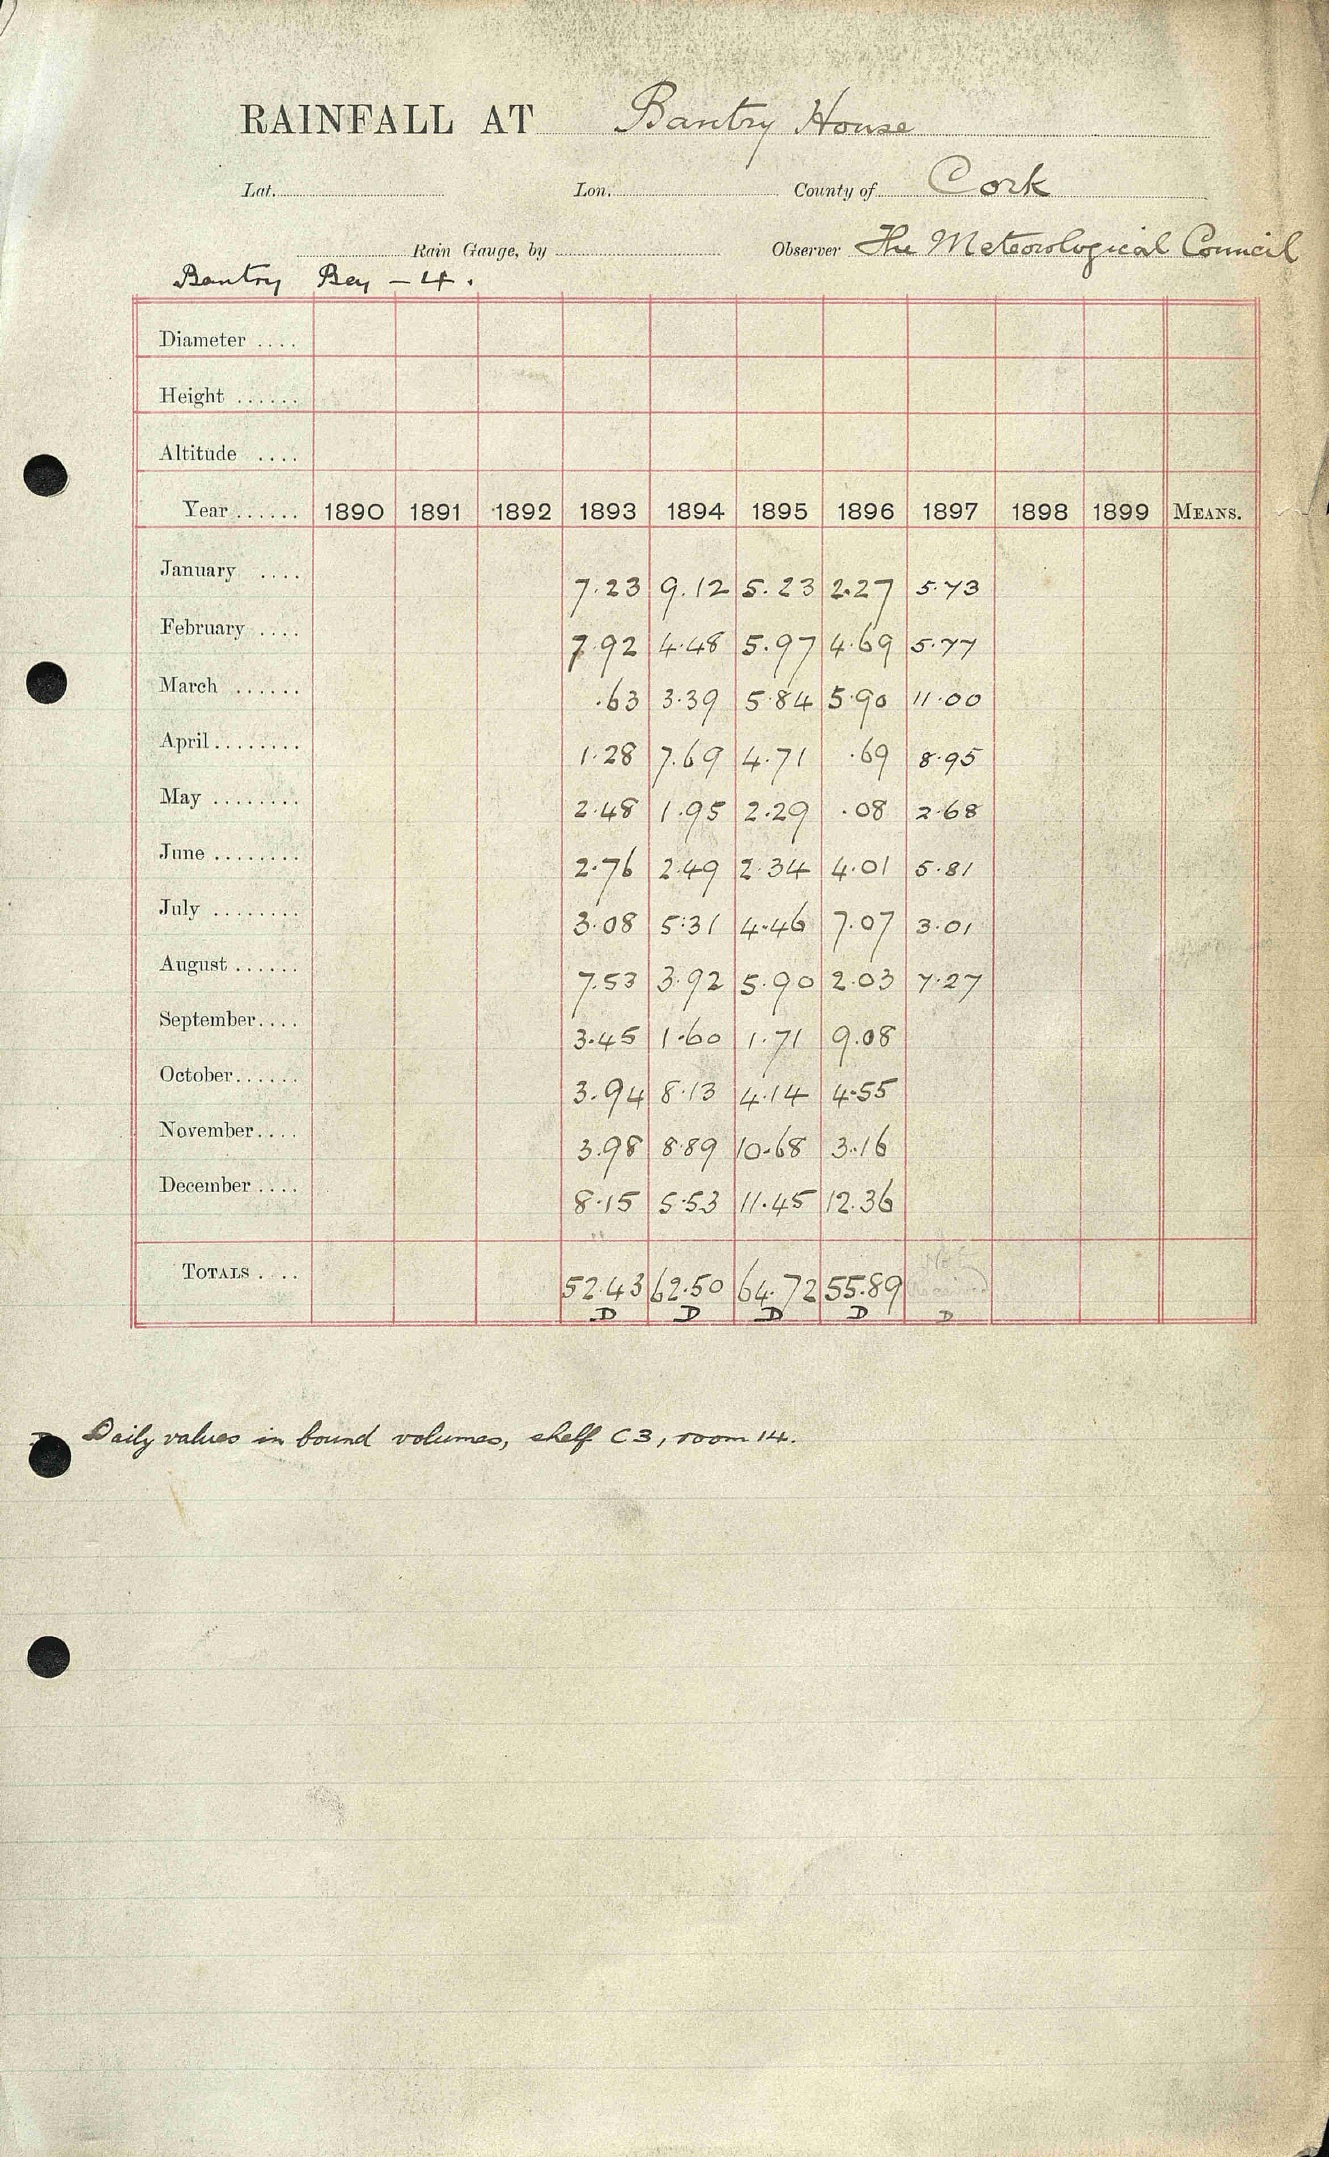 RAINFALL AT Bantry House
Lat. Lon. County of Cork
Rain Gauge, by Observer The Meteorological Council
Bantry Bay - 4.
Diameter ....
Height ......
Altitude ....
Year ...... 1890 1891 1892 1893 1894 1895 1896 1897 1898 1899 MEANS.
January .... 7.23 9.12 5.23 2.27 5.73
February .... 7.92 4.48 5.97 4.69 5.77
March ...... .63 3.39 5.84 5.90 11.00
April ........ 1.28 7.69 4.71 .69 8.95
May ........ 2.48 1.95 2.29 .08 2.68
June ........ 2.76 2.49 2.34 4.01 5.81
July ........ 3.08 5.31 4.46 7.07 3.01
August ...... 7.53 3.92 5.90 2.03 7.27
September.... 3.45 1.60 1.71 9.08
October...... 3.94 8.13 4.14 4.55
November.... 3.98 8.89 10.68 3.16
December .... 8.15 5.53 11.45 12.36
TOTALS .... 52.43 62.50 64.72 55.89
D D D D D
D Daily values in bound volumes, shelf C3, room 14.